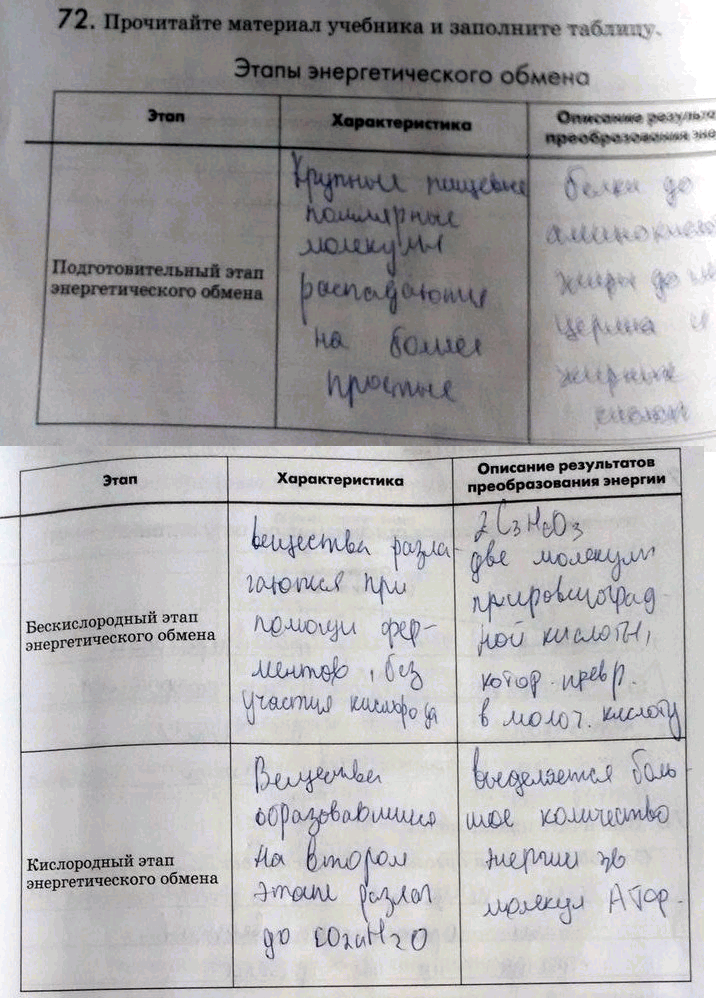 72. Прочитайте материал учебника и заполните таблицу.
Этапы энергетического обмена
Этап
Характеристика
Описание результа
преобразования эне
Подготовительный этап
энергетического обмена
Крупные пищевые
молекулы
распадаются
на более
простые
белки до
аминокисло
жиры до
и
жирных
кислот
Этап
Характеристика
Описание результатов
преобразования энергии
Бескислородный этап
энергетического обмена
вещества разла-
гаются при
помощи фер-
ментов, без
участия кислорода
2C3H6O3
две молекулы
пировиноград-
ной кислоты,
котор. превр.
в молоч. кислоту
Кислородный этап
энергетического обмена
Вещества
образовавшиеся
на втором
этапе разлаг
до CO2 и H2O
выделяется боль-
шое количество
энергии
молекул